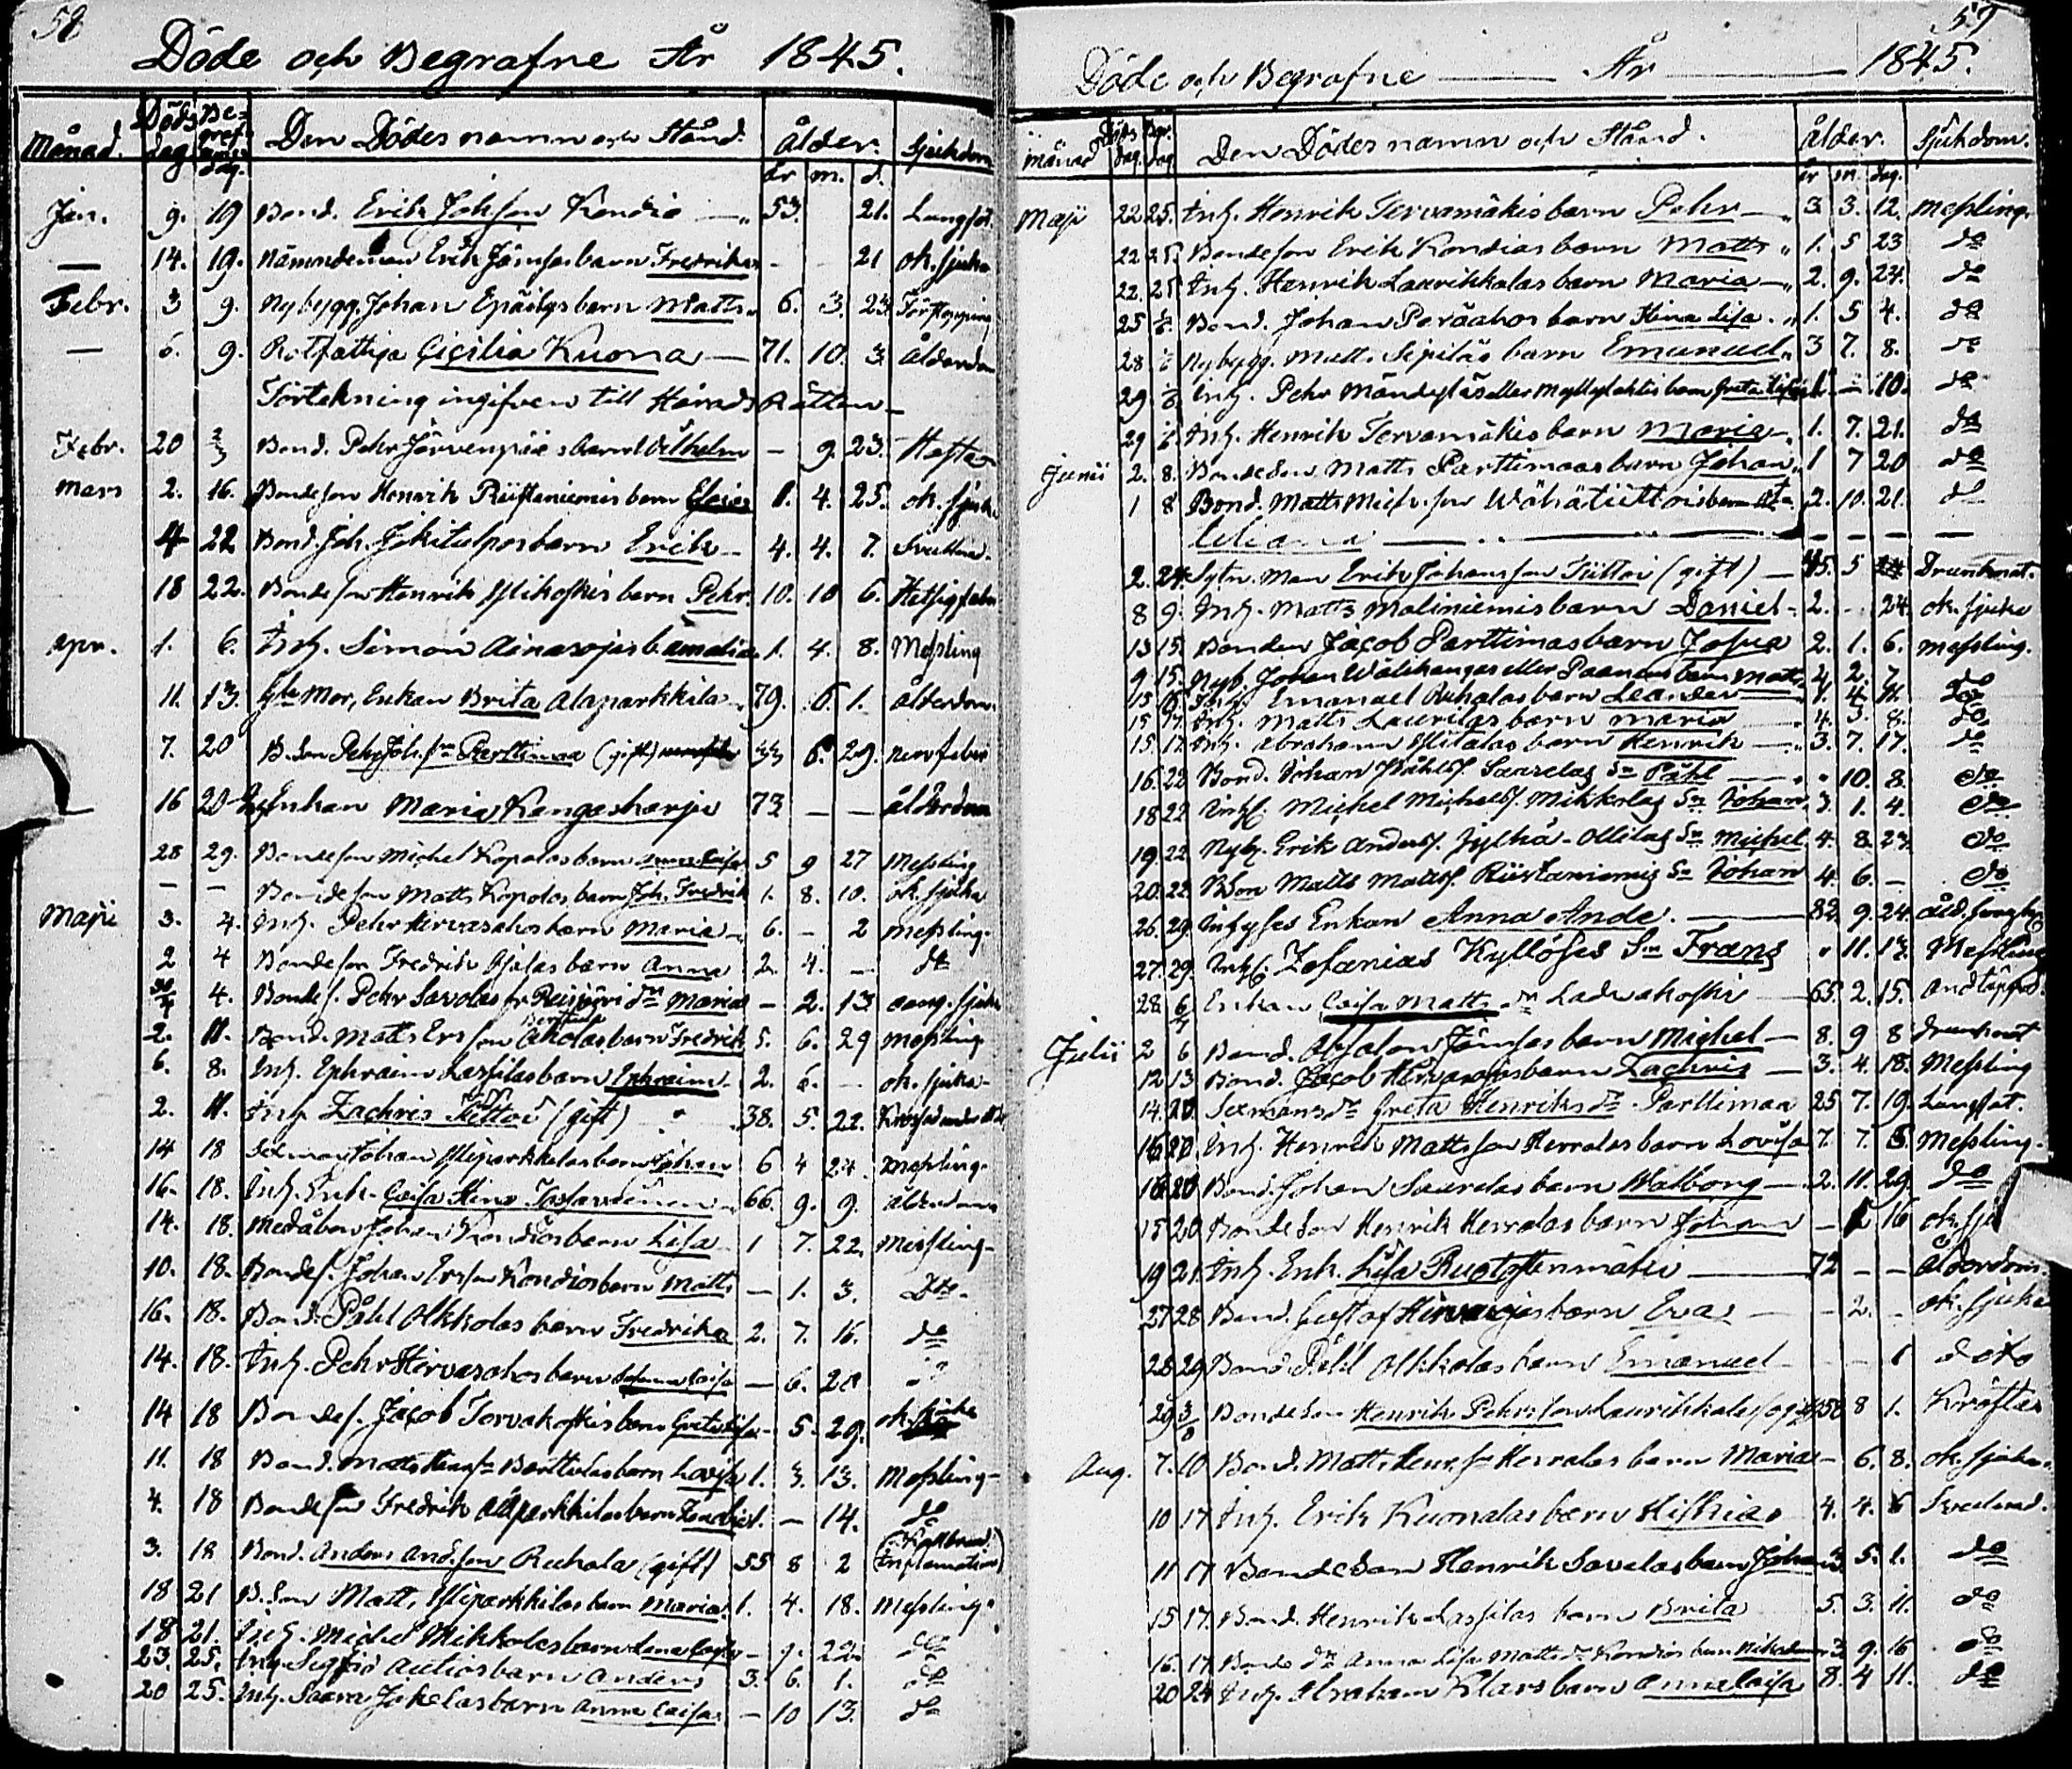 58
Döde och Begrafne År 1845.
Månad. Döds dag Begrafnings dag. Den Dödes namn och Stånd. Ålder. Sjukdom
år m. d.
Jan. 9. 19 Bond. Erik Johsson Kondio — 53. 21. Lungsot.
— 14. 19. Nämndeman Erik Jämses barn Fredrika - 21 ok. sjuka
Febr. 3 9. Nybygg. Johan barn Matts 6. 3. 23. Förstoppning
— 6. 9. Rotfattiga Cicilia Kuona — 71. 10. 3. Ålderdom
Förtekning ingifven till Härads Rätten —
Febr. 20 2/3 Bond. Pehr Järvenpää s barn Wilhelm — 9. 23. Hosta
Mars 2. 16. Bondeson Henrik Riistaniemis barn 1. 4. 25. ok. sjuka
4 22 Bond. Joh. Jokitulpos barn Erik — 4. 4. 7. Svullnad.
18 22. Bondeson Henrik Ylikoskis barn Pehr. 10. 10 6. Hetsig feber
Apr. 1. 6. Inh. Simon Ainasojas b. Amalia 1. 4. 8. Messling
11. 13. Gla Mor, Enkan Brita Alaparkkila 79. 6. 1. ålderdom.
7. 20 B. son Pehr Johsson Parttimaa (gift) 33 6. 29. nervfeber
16 20 Enkan Maria Kangasharju 73 — — ålderdom
28 29. Bondeson Michel Kopolas barn Caisa 5 9 27 Messling
— — Bondeson Matts Kopolas barn Joh. Fredrik 1. 8. 10. ok. sjuka
Maji 3. 4. Inh. Pehr Hirvasahos barn Maria — 6. - 2 messling.
2 4 Bondeson Fredrik Ojalas barn Anna 2. 4. — do
30/4 4. Bondes. Pehr Savolas fr Reisjärvi dr Maria — 2. 13 sjuka
2. 11. Bond. Matts Ersson Aholas barn Fredrik 5. 6. 29 messling
6. 8. Inh. Ephraim Lassilas barn Ephraim. 2. 6. — ok. sjuka -
2. 11. Inh. Zachris Tiittoi (gift) 38. 5. 22.
14 18 Sexman Johan Yliparkkilas barn Johan 6 4 24. messling.
16. 18. Inh. Enk. Caisa Stina 66. 9. 9. ålderdom
14. 18. Medåboen Johan Kondios barn Lisa 1 7. 22. Messling -
10. 18. Bondes. Johan Ersson Kondios barn Matts — 1. 3. Dto.
16. 18. Bond. Påhl Olkkolas barn Fredrika 2. 7. 16. do
14. 18. Inh. Pehr Hirvasahos barn Caisa — 6. 20 "
14 18 Bondes. Jacob Torvakoskis barn Greta Lisa - 5. 29. ok. sjuka
11. 18 Bond. Matts Henrsson Berttulas barn Lovisa 1. 3. 13. Messling -
4. 18 Bondeson Fredrik Alaparkkilas barn 1. — 14. do
3. 18 Bond. Anders Andsson Ruhala (gift) 55 8 2 (Inflamation)
18 21 B. Son Matts Yliparkkilas barn Maria. 1. 4. 18. messling.
18 21. Inh. Michel Mikkolas barn Lena Caisa — 9. 22. do
23. 25. Inh. Sigfrid Autios barn Anders 3. 6. 1. do
20 25. Inh. Jakolas barn Anna Caisa — 10 13. do
59
Döde och Begrafne — År — 1845.
månad Döds dag. Begr. dag Den Dödes namn och Stånd. ålder. Sjukdom.
år m. dag.
Maji 22. 25. Inh. Henrik Tervamäkis barn Pehr — 3. 3. 12. Messling.
22 25. Bondeson Erik Kondias barn Matts 1. 5 23 do
22. 25 Inh. Henrik Laurikkalas barn Maria — 2. 9. 24. do
25 Bond. Johan Peräahos barn Stina Lisa. 1. 5 4. do
28 Nybygg. Matts Sipiläs barn Emanuel 3 7. 8. do
29. Inh. Pehr eller barn Greta Lisa 1. — 10. do
29 Inh. Henrik Tervamäkis barn Maria — 1. 7. 21. do
Junii 2. 8. Bondeson Matts Parttimaas barn Johan 1 7 20 do
1 8 Bond. Matts Mich. son Wähätiittois barn 2. 10. 21. do
Liliana — — — — —
2. 24. Sytn. man Erik Johansson Tiittoi (gift) — 45. 5 Drunknat.
8 9. Inh. Matts Maliniemis barn Daniel - 2. - 24. ok. sjuka
13 15. Bonden Jacob Parttimas barn Josua 2. 1. 6. messling.
9. 15. Nyb. Johan Wälikangas eller Paananens barn Matts 4 2. 7. do
15 Inh. Emanuel Ruhalas barn Leander 1. 4. 11. do
15 17. Inh. Matts Laurilas barn Maria — 4. 3. 8. do
15. 17. Inh. Abraham Ylitalas barn Henrik — 3. 7. 17. do
16. 22 Bond. Johan Påhlss. Saarelas Sn Påhl — " 10. 8. do
18 22 Inh. Michel Michelss. Mikkolas Sn Johan 3. 1. 4. do
19. 22 Nyby. Erik Anderss. Jylhä-Ollilas Sn Michel 4. 8. 23. do
20. 22. BSon Matts Mattss. Riistaniemis Sn Johan 4. 6. — do
26. 29. Inhyses Enkan Anna Ande. — 82. 9. 24.
27. 29. Inh. Zefanias Kyllöses Sn Frans " 11. 13. Messling
28. 6/7 Enkan Caisa Matts dr Ladvakoski — 65. 2. 15. Andtäppa.
Julii 2 6 Bond. Absalon Jämses barn Michel — 8. 9 8 Drunknat
12 13 Bond. Jacob Hirvasojas barn Zachris — 3. 4. 18. Messling
14. 20. Sexmans dr Greta Henriks dr Parttimaa 25 7. 19. Lungsot.
16 20. Inh. Henrik Mattsson Herralas barn Lovisa 7. 7. 5. Messling.
16 20 Bond. Johan Saarelas barn Walborg — 2. 11. 29. do
15 20 Bondeson Henrik Herralas barn Johan — 16 ok. sju
19 21. Inh. Enk. Lisa — 72 — — Ålderdom
27 28 Bond. Gustaf Hirvasojas barn Eva — — 2. - ok. sjuka
28 29 Bond. Påhl Olkkolas barn Emanuel — — 1 doto
29 3/8 Bondeson Henrik Pehrsson Laurikkala 58 8 1. Kräftas
Aug. 7. 10 Bond. Matts Henr. sn Herralas barn Maria — 6. 8. ok. sjuka.
10 17 Inh. Erik Kuonalas barn Hiskias 4. 4. 6 Svullnad.
11 17 Bondeson Henrik Savelas barn Johan 3 5. 1. do
15 17. Bond. Henrik Lassilas barn Brita 5. 3. 11. do
16. 17. Bonde dr Anna Lisa Matts dr Kondios barn 3 9. 16 do
20 24 Inh. Abraham Klars barn Anna Caisa 8. 4 11. do